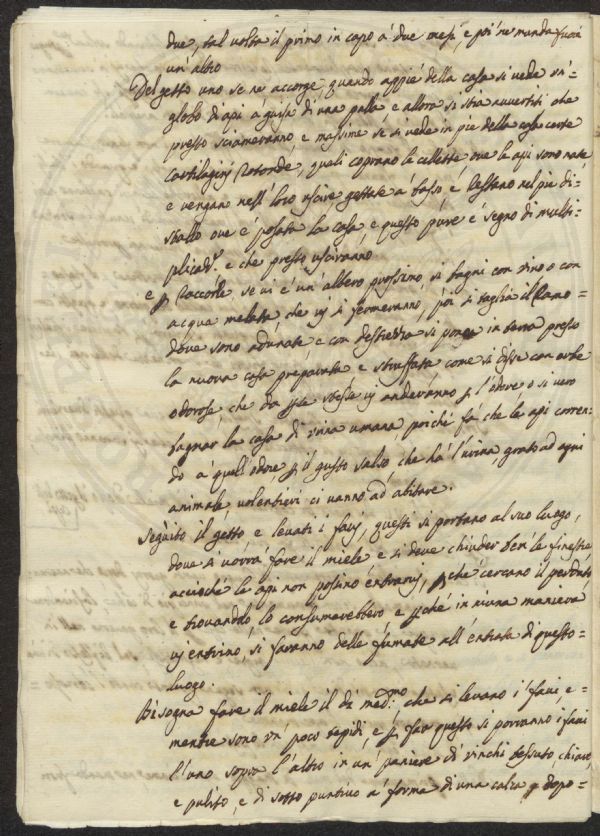 due, tal volta il primo in capo à due mesi, e poi ne manda fuora
un' altro
Del getto uno se ne accorge, quando appiè della casa si vede un'
globo di api à guisa di una palla e allora si stia avvertiti che
presto sciameranno, e massime se si vede in piè della casa certe
Cartilaginj Rotonde, quali coprano le cellette ove le api sono nate,
e vengano nell' loro uscire gettate à basso, e restano nel piè di-
stallo ove è posata la casa, e questo pure è segno di multi-
plicad.e e che presto usciranno
e p Raccorle, se vi è un' albero prossimo si bagni con vino o con
acqua melata che ivj si fermeranno, poi si taglia il Ramo=
dove sono adunate e con destrezza si pone in terra presso
la nuova casa preparata e struffata come si disse con erbe
odorose, che da sse stesse ivj anderanno p l' odore o si vero
bagnar la casa di urina umana, poiché fà che le api corren-
do à quell' odore, p il gusto salso che hà l' urina grato ad ogni
animale volentieri ci vanno ad abitare.
Seguito il getto e levati i favj, questi si portano al suo luogo,
dove si vorrà fare il miele e si deve chiuder ben' le finestre
acciochè le api non possino entrarvj, p che cercano il perduto
e trovandolo lo consumarebbero e p chè in niuna maniera
vj entrino, si faranno delle fumate all' entrate di questo=
luogo.
Bisogna fare il miele il dì med.mo che si levano i favi, e=
mentre sono un' poco tepidi, e p far questo si porranno i favi
l' uno sopra l' altro in un' paniere di vinchi tessuto, chiaro,
e pulito, e di sotto puntivo à forma di una calza p dopo=